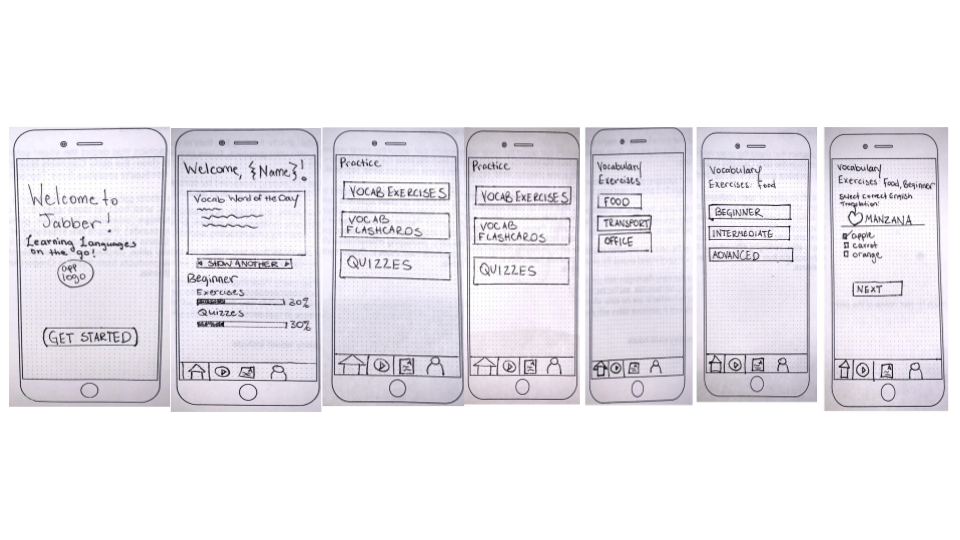 Welcome to
Jabber!
Learning Languages
on the go!
app
logo
GET STARTED
Welcome, {Name}!
Vocab Word of the Day
SHOW ANOTHER
Beginner
Exercises
30%
Quizzes
30%
Practice
VOCAB EXERCISES
VOCAB
FLASHCARDS
QUIZZES
Practice
VOCAB EXERCISES
VOCAB
FLASHCARDS
QUIZZES
Vocabulary
Exercises
FOOD
TRANSPORT
OFFICE
Vocabulary
Exercises: Food
BEGINNER
INTERMEDIATE
ADVANCED
Vocabulary
Exercises: Food, Beginner
Select correct English
Translation:
MANZANA
apple
carrot
orange
NEXT